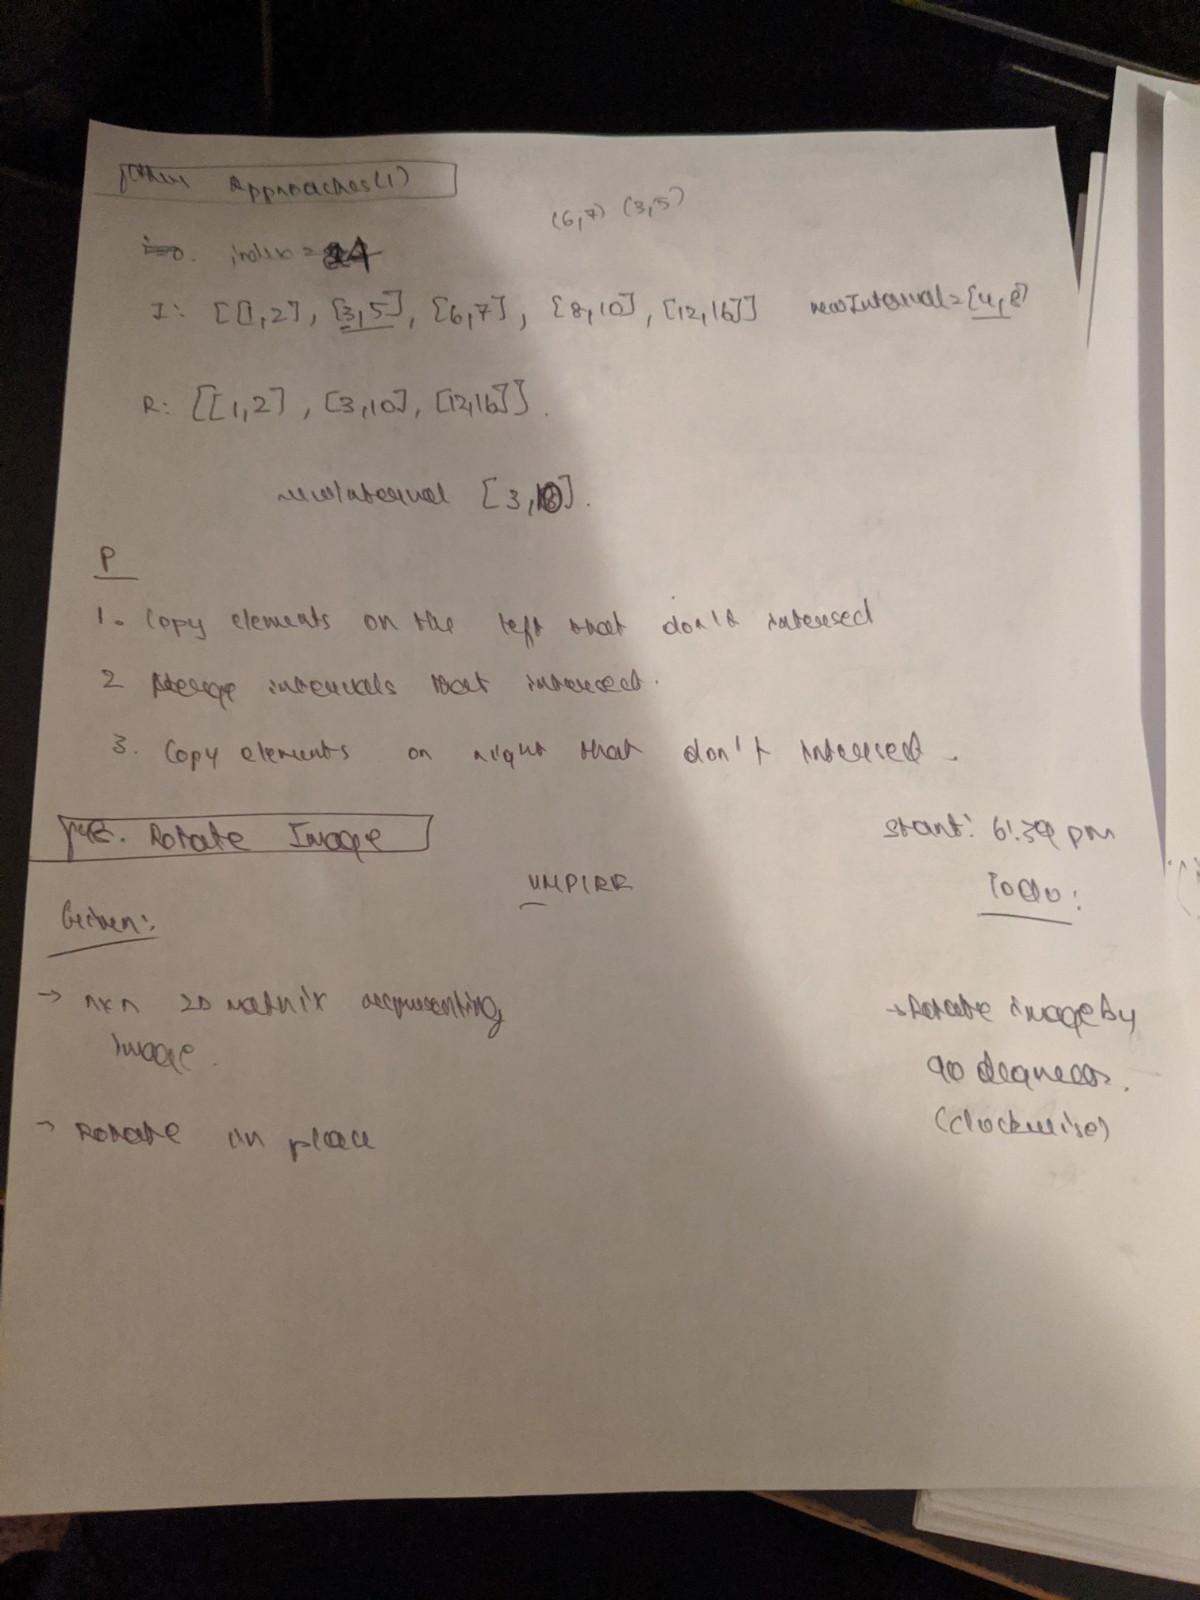 Other Approaches(1)
(6,7) (3,5)
i=0. index =
I: [[1,2], [3,5], [6,7], [8,10], [12,16]] newInterval = [4,8]
R: [[1,2], [3,10], [12,16]].
newInterval [3,10].
P
1. Copy elements on the left that don't intersect
2 Merge intervals that intersect.
3. Copy elements on right that don't intersect.
48. Rotate Image
start: 6:39 pm
UMPIRE
Todo:
Given:
→ nxn 2D matrix representing
image.
→ Rotate image by
90 degrees.
(clockwise)
→ Rotate in place